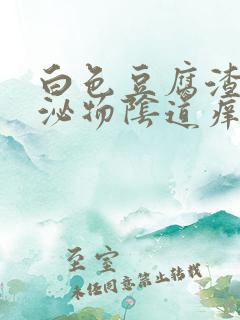 白色豆腐渣
泌物陰道癢
至室
未经同意禁止转载